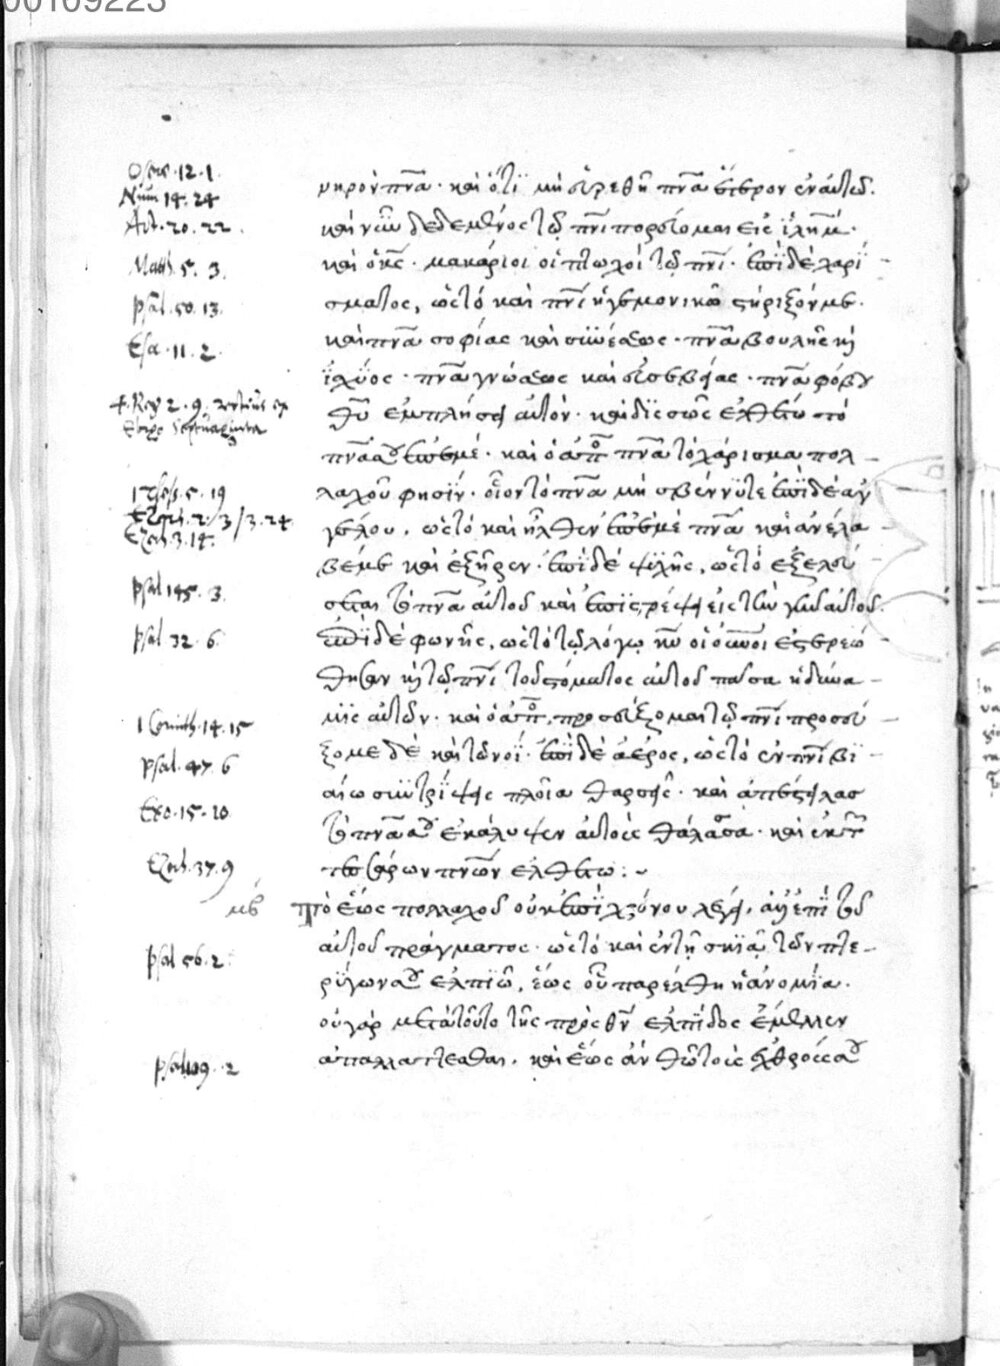 00109223
Oseae · 12 · 1 ·
Num 14 · 24
Act · 20 · 22 ·
Matth. 5 · 3 ·
psal · 50 · 13 ·
Esa · 11 · 2 ·
4 · Reg 2 · 9 ·
1 Thess · 5 · 19
Ezech · 2 · / 3 / 3 · 24
Ezech · 3 · 14 ·
psal 145 · 3 ·
psal 32 · 6 ·
1 Corinth · 14 · 15
psal · 47 · 6
Exo · 15 · 10
Ezech · 37 · 9
μβ
psal 56 · 2 ·
psal 109 · 2
νηρὸν πνᾶ · καὶ ὅτι μὴ εὑρεθῆ πνᾶ ἕτερον ἐν αὐτῶ ·
καὶ νῦν δεδεμένος τῶ πνι πορεύομαι εἰς ἱλημ ·
καὶ ὁ κς · μακάριοι οἱ πτωχοὶ τῶ πνι · ἐπὶ δὲ χαρί
σματος, ὡς τό καὶ πνι ἡγεμονικῶ στήριξόν με ·
καὶ πνᾶ σοφίας καὶ συνέσεως · πνᾶ βουλῆς κὶ
ἰσχύος · πνᾶ γνώσεως καὶ εὐσεβείας · πνᾶ φόβου
θῦ ἐμπλήσει αὐτόν · καὶ δὶς σῶς ἐλθέτω τό
πνᾶ σοῦ ἐπ' ἐμέ · καὶ ὁ ἀπο πνᾶ τὸ χάρισμα πολ
λαχοῦ φησίν · οἷον τὸ πνᾶ μὴ σβέννυτε ἐπὶ δὲ ἀγ
γέλου, ὡς τό καὶ ἦλθεν ἐπ' ἐμὲ πνᾶ καὶ ἀνέλα
βέ με καὶ ἐξῆρεν · ἐπὶ δὲ ψυχῆς, ὡς τό ἐξελεύ
σεται τὸ πνᾶ αὐτοῦ καὶ ἐπιστρέψει εἰς τὴν γῆν αὐτοῦ ·
ἐπὶ δὲ φωνῆς, ὡς τὸ τῶ λόγω κυ οἱ οὐνοι ἐστερεώ
θησαν κὶ τῶ πνι τοῦ στόματος αὐτοῦ πᾶσα ἡ δύνα
μις αὐτῶν · καὶ ὁ ἀπο, προσεύξομαι τῶ πνι προσεύ
ξομε δὲ καὶ τῶ νοΐ · ἐπὶ δὲ ἀέρος, ὡς τό ἐν πνι βι
αίω συντρίψεις πλοῖα θαρσεῖς · καὶ ἀπέστειλας
τὸ πνᾶ σοῦ ἐκάλυψεν αὐτοὺς θάλασσα · καὶ ἐκ τῶν
τεσσάρων πνων ἐλθέτω : ~
Τὸ ἕως πολλαχοῦ οὐκ ἐπὶ χρόνου λέγει, ἀλλ' ἐπὶ τοῦ
αὐτοῦ πράγματος · ὡς τό καὶ ἐν τῆ σκιᾶ τῶν πτε
ρύγων σοῦ ἐλπιῶ, ἕως οὗ παρέλθη ἡ ἀνομία ·
οὐ γὰρ μετὰ τοῦτο τῆς πρὸς θν ἐλπίδος ἔμελλεν
ἀπαλλάττεσθαι, καὶ ἕως ἂν θῶ τοὺς ἐχθρούς σου